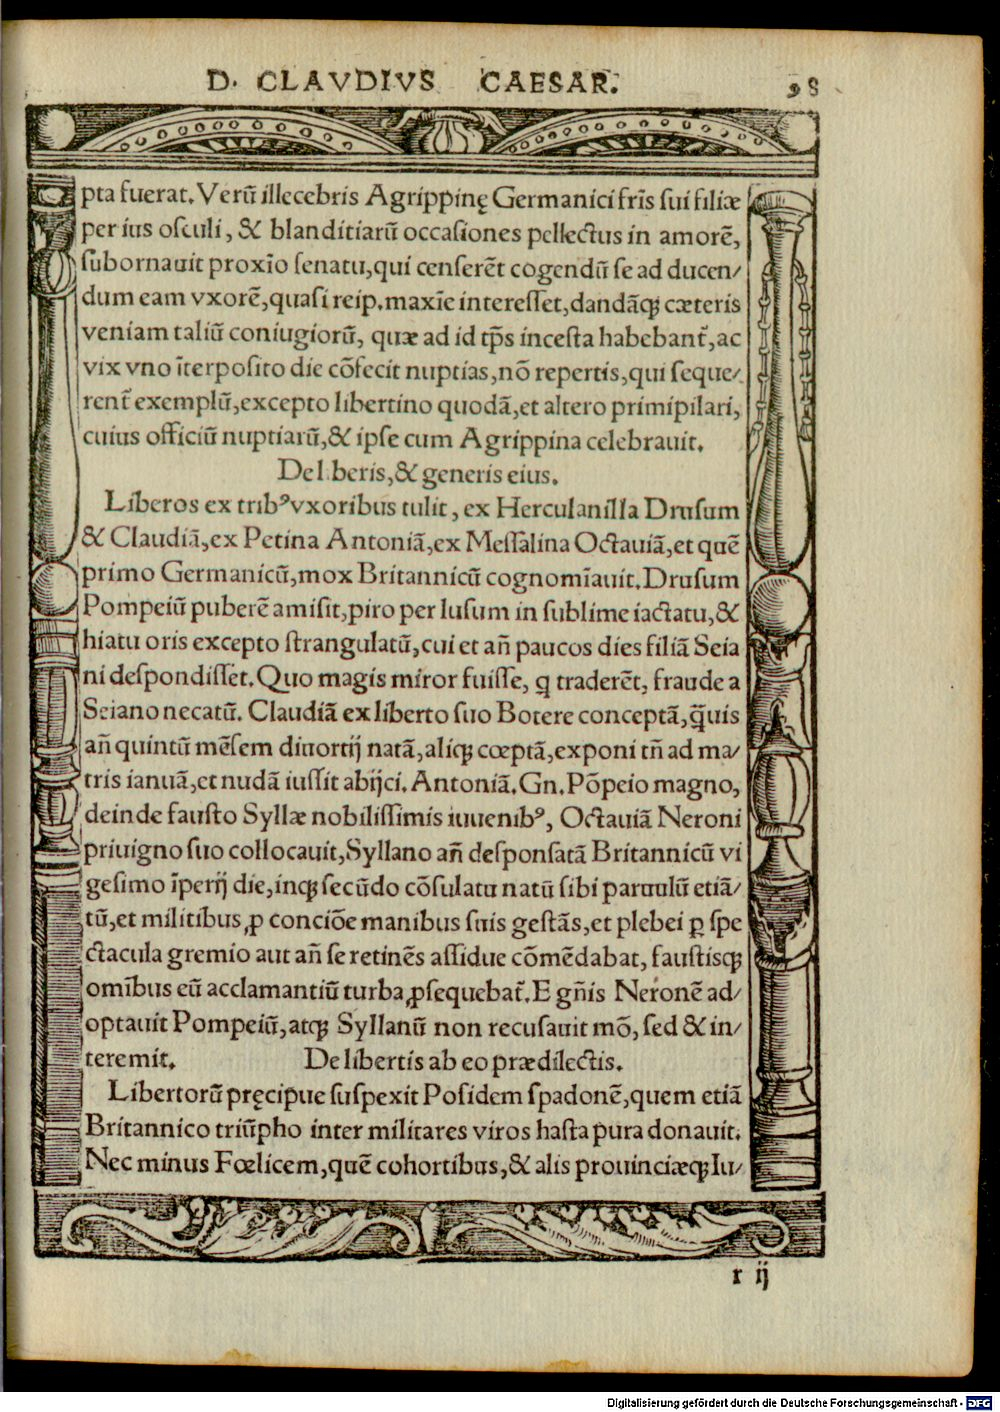 D. CLAVDIVS CAESAR. 98
pta fuerat. Verũ illecebris Agrippinę Germanici fr̃is sui filiæ
per ius osculi, & blanditiarũ occasiones pellectus in amorẽ,
subornauit proxĩo senatu, qui censerẽt cogendũ se ad ducen/
dum eam vxorẽ, quasi reip. maxĩe interesset, dandãq; cæteris
veniam taliũ coniugiorũ, quæ ad id tp̃s incesta habebant̃, ac
vix vno ĩterposito die cõfecit nuptias, nõ repertis, qui seque/
rent̃ exemplũ, excepto libertino quodã, et altero primipilari,
cuius officiũ nuptiarũ, & ipse cum Agrippina celebrauit.
De liberis, & generis eius.
Liberos ex tribꝰ vxoribus tulit, ex Herculanilla Drusum
& Claudiã, ex Petina Antoniã, ex Messalina Octauiã, et quẽ
primo Germanicũ, mox Britannicũ cognomĩauit. Drusum
Pompeiũ puberẽ amisit, piro per lusum in sublime iactatu, &
hiatu oris excepto strangulatũ, cui et añ paucos dies filiã Seia
ni despondisset. Quo magis miror fuisse, q traderẽt, fraude a
Seiano necatũ. Claudiã ex liberto suo Botere conceptã, q̃uis
añ quintũ mẽsem diuortij natã, aliq; cœptã, exponi tñ ad ma/
tris ianuã, et nudã iussit abijci. Antoniã. Gn. Põpeio magno,
deinde fausto Syllæ nobilissimis iuuenibꝰ, Octauiã Neroni
priuigno suo collocauit, Syllano añ desponsatã Britannicũ vi
gesimo ĩperij die, inq; secũdo cõsulatu natũ sibi paruulũ etiã/
tũ, et militibus ꝓ conciõe manibus suis gestãs, et plebei ꝑ spe
ctacula gremio aut añ se retinẽs assidue cõmẽdabat, faustisq;
omĩbus eũ acclamantiũ turba ꝓsequebat̃. E gñis Neronẽ ad/
optauit Pompeiũ, atq; Syllanũ non recusauit mõ, sed & in/
teremit. De libertis ab eo prædilectis.
Libertorũ pręcipue suspexit Posidem spadonẽ, quem etiã
Britannico triũpho inter militares viros hasta pura donauit.
Nec minus Fœlicem, quẽ cohortibus, & alis prouinciæq; Iu/
r ij
Digitalisierung gefördert durch die Deutsche Forschungsgemeinschaft - DFG